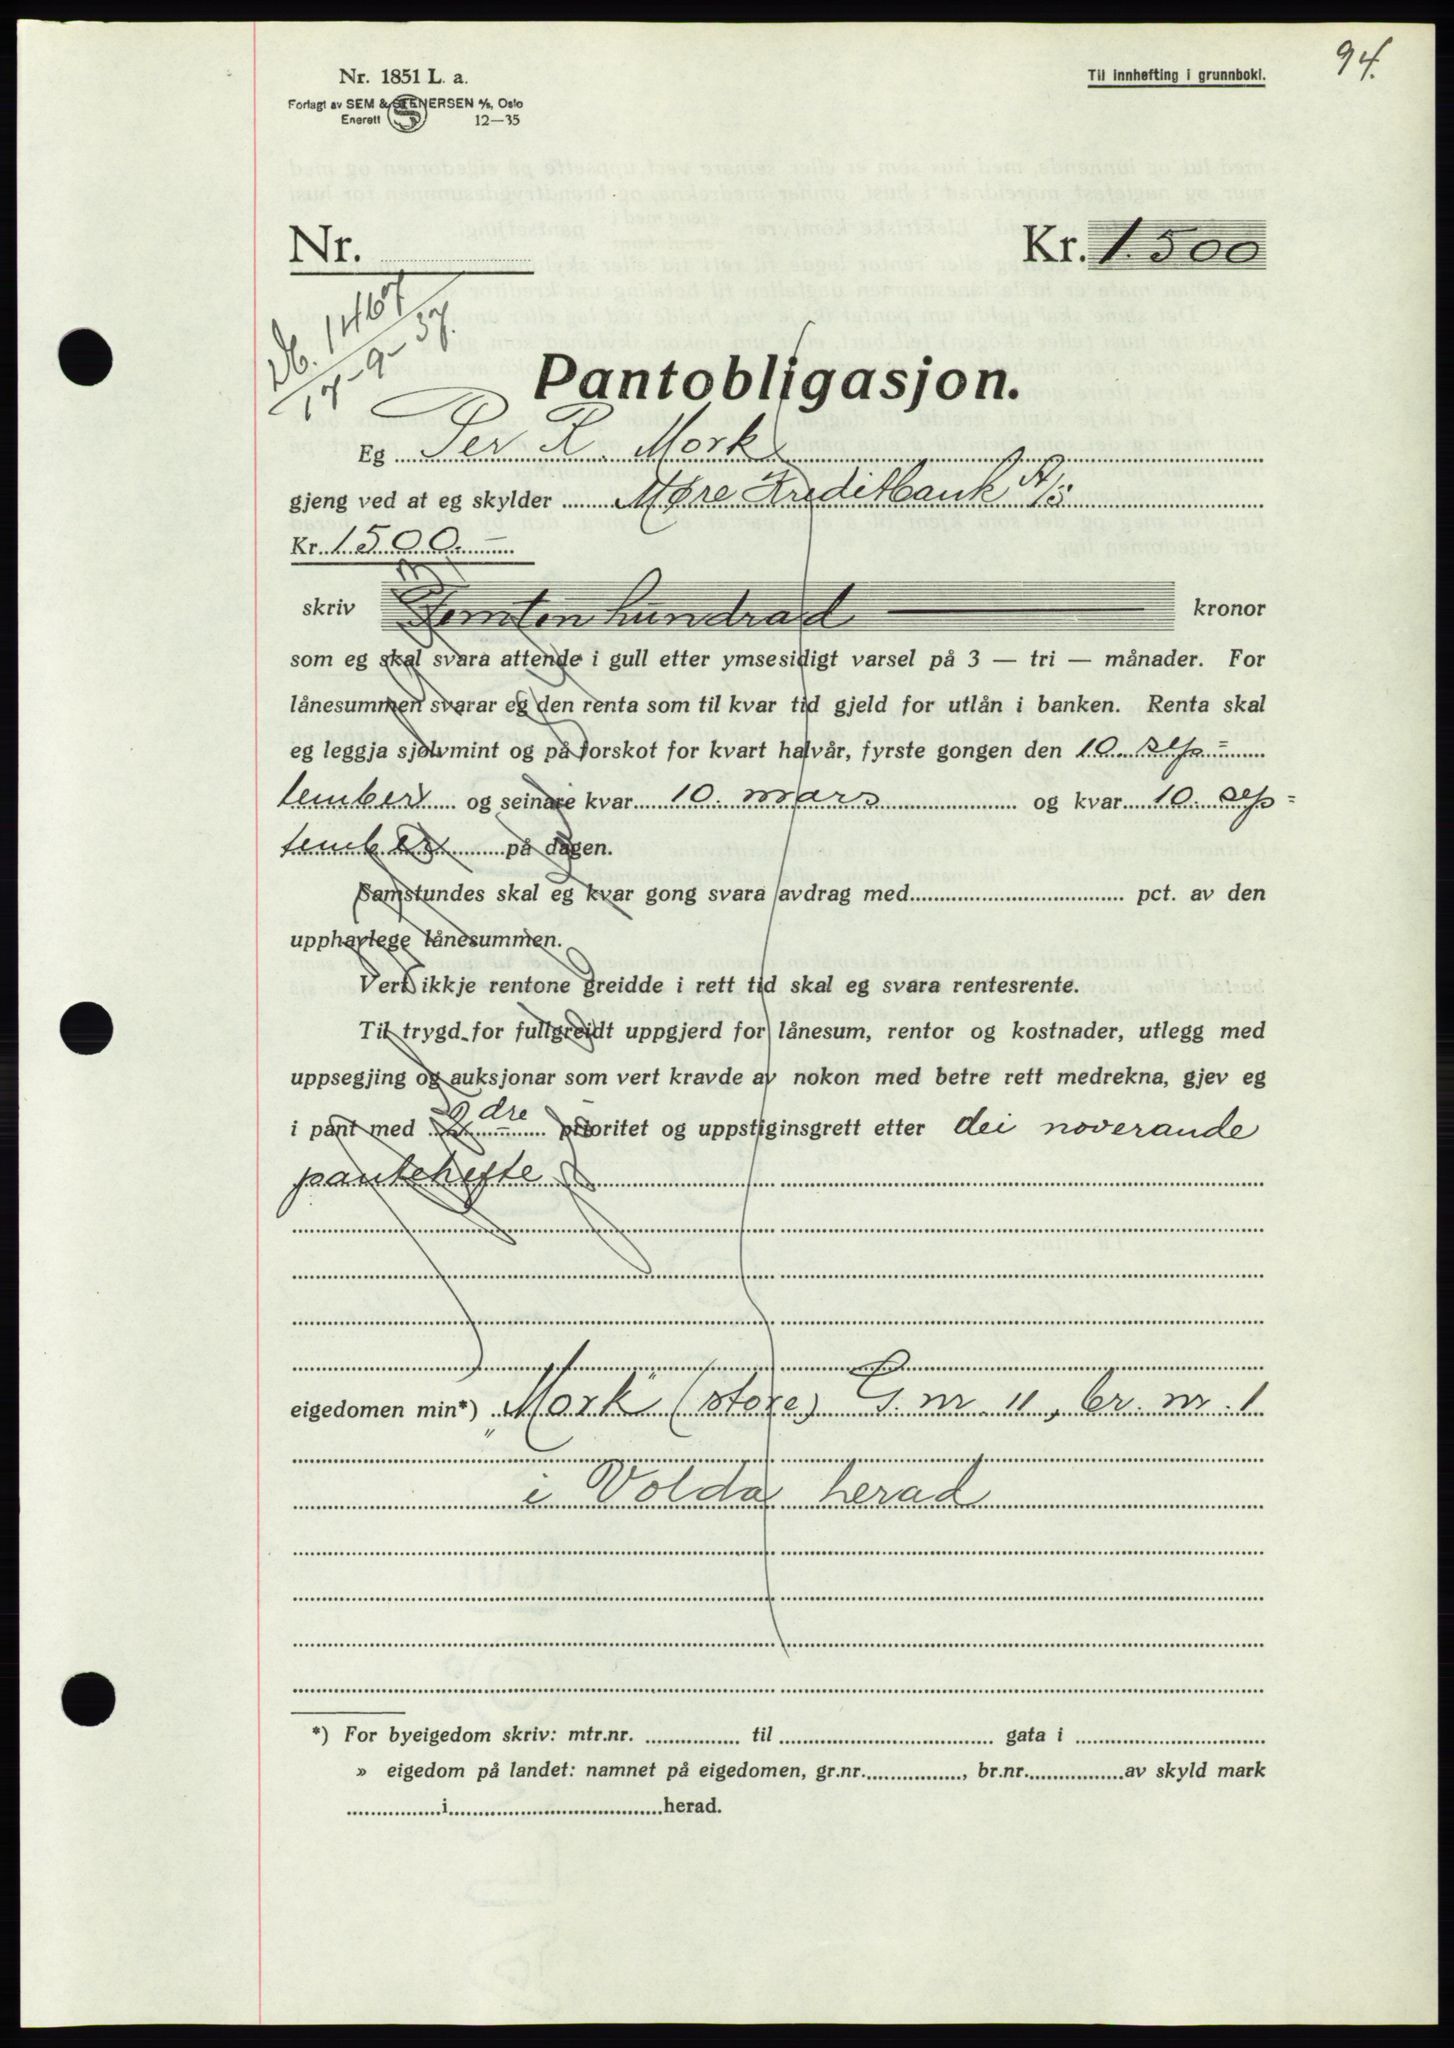 94.
Nr. 1851 L. a.
Til innhefting i grunnboki.
Forlagt av SEM & STENERSEN A/S, Oslo
Enerett 12—35
Nr.
Kr. 1.500
Db. 1467
17-9-37.
Pantobligasjon.
Eg Per R. Mork
gjeng ved at eg skylder Møre Kreditbank A/S
Kr. 1500.-
skriv Femten hundrad kronor
som eg skal svara attende i gull etter ymsesidigt varsel på 3 — tri — månader. For
lånesummen svarar eg den renta som til kvar tid gjeld for utlån i banken. Renta skal
eg leggja sjølvmint og på forskot for kvart halvår, fyrste gongen den 10. sep=
tember og seinare kvar 10. mars og kvar 10. sep=
tember på dagen.
Samstundes skal eg kvar gong svara avdrag med pct. av den
upphavlege lånesummen.
Vert ikkje rentone greidde i rett tid skal eg svara rentesrente.
Til trygd for fullgreidt uppgjerd for lånesum, rentor og kostnader, utlegg med
uppsegjing og auksjonar som vert kravde av nokon med betre rett medrekna, gjev eg
i pant med 2dre prioritet og uppstiginsgrett etter dei noverande
pantehefte
eigedomen min*) „Mork" (store) G. nr. 11, br. nr. 1
i Volda herad
*) For byeigedom skriv: mtr.nr. til gata i
» eigedom på landet: namnet på eigedomen, gr.nr. , br.nr. av skyld mark
i herad.